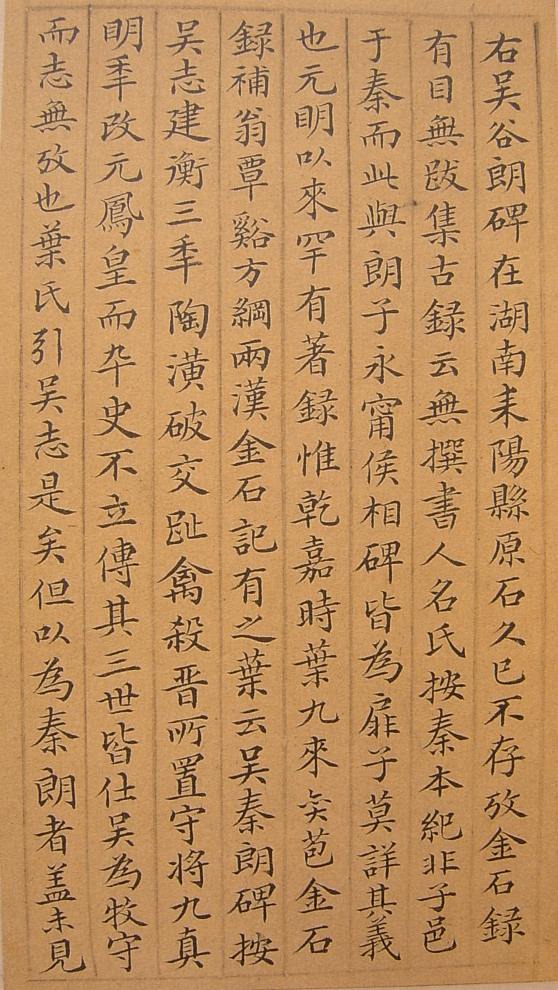 右吴谷朗碑在湖南耒陽縣原石久已不存攷金石録
有目無跋集古録云無撰書人名氏按秦本紀非子邑
于秦而此與朗子永甯侯相碑皆為扉子莫詳其義
也元明以來罕有著録惟乾嘉時葉九來奕苞金石
録補翁覃谿方綱兩漢金石記有之葉云吴秦朗碑按
吴志建衡三年陶潢破交趾禽殺晋所置守将九真
明年改元鳳皇而卒史不立傳其三世皆仕吴為牧守
而志無攷也葉氏引吴志是矣但以為秦朗者盖未見